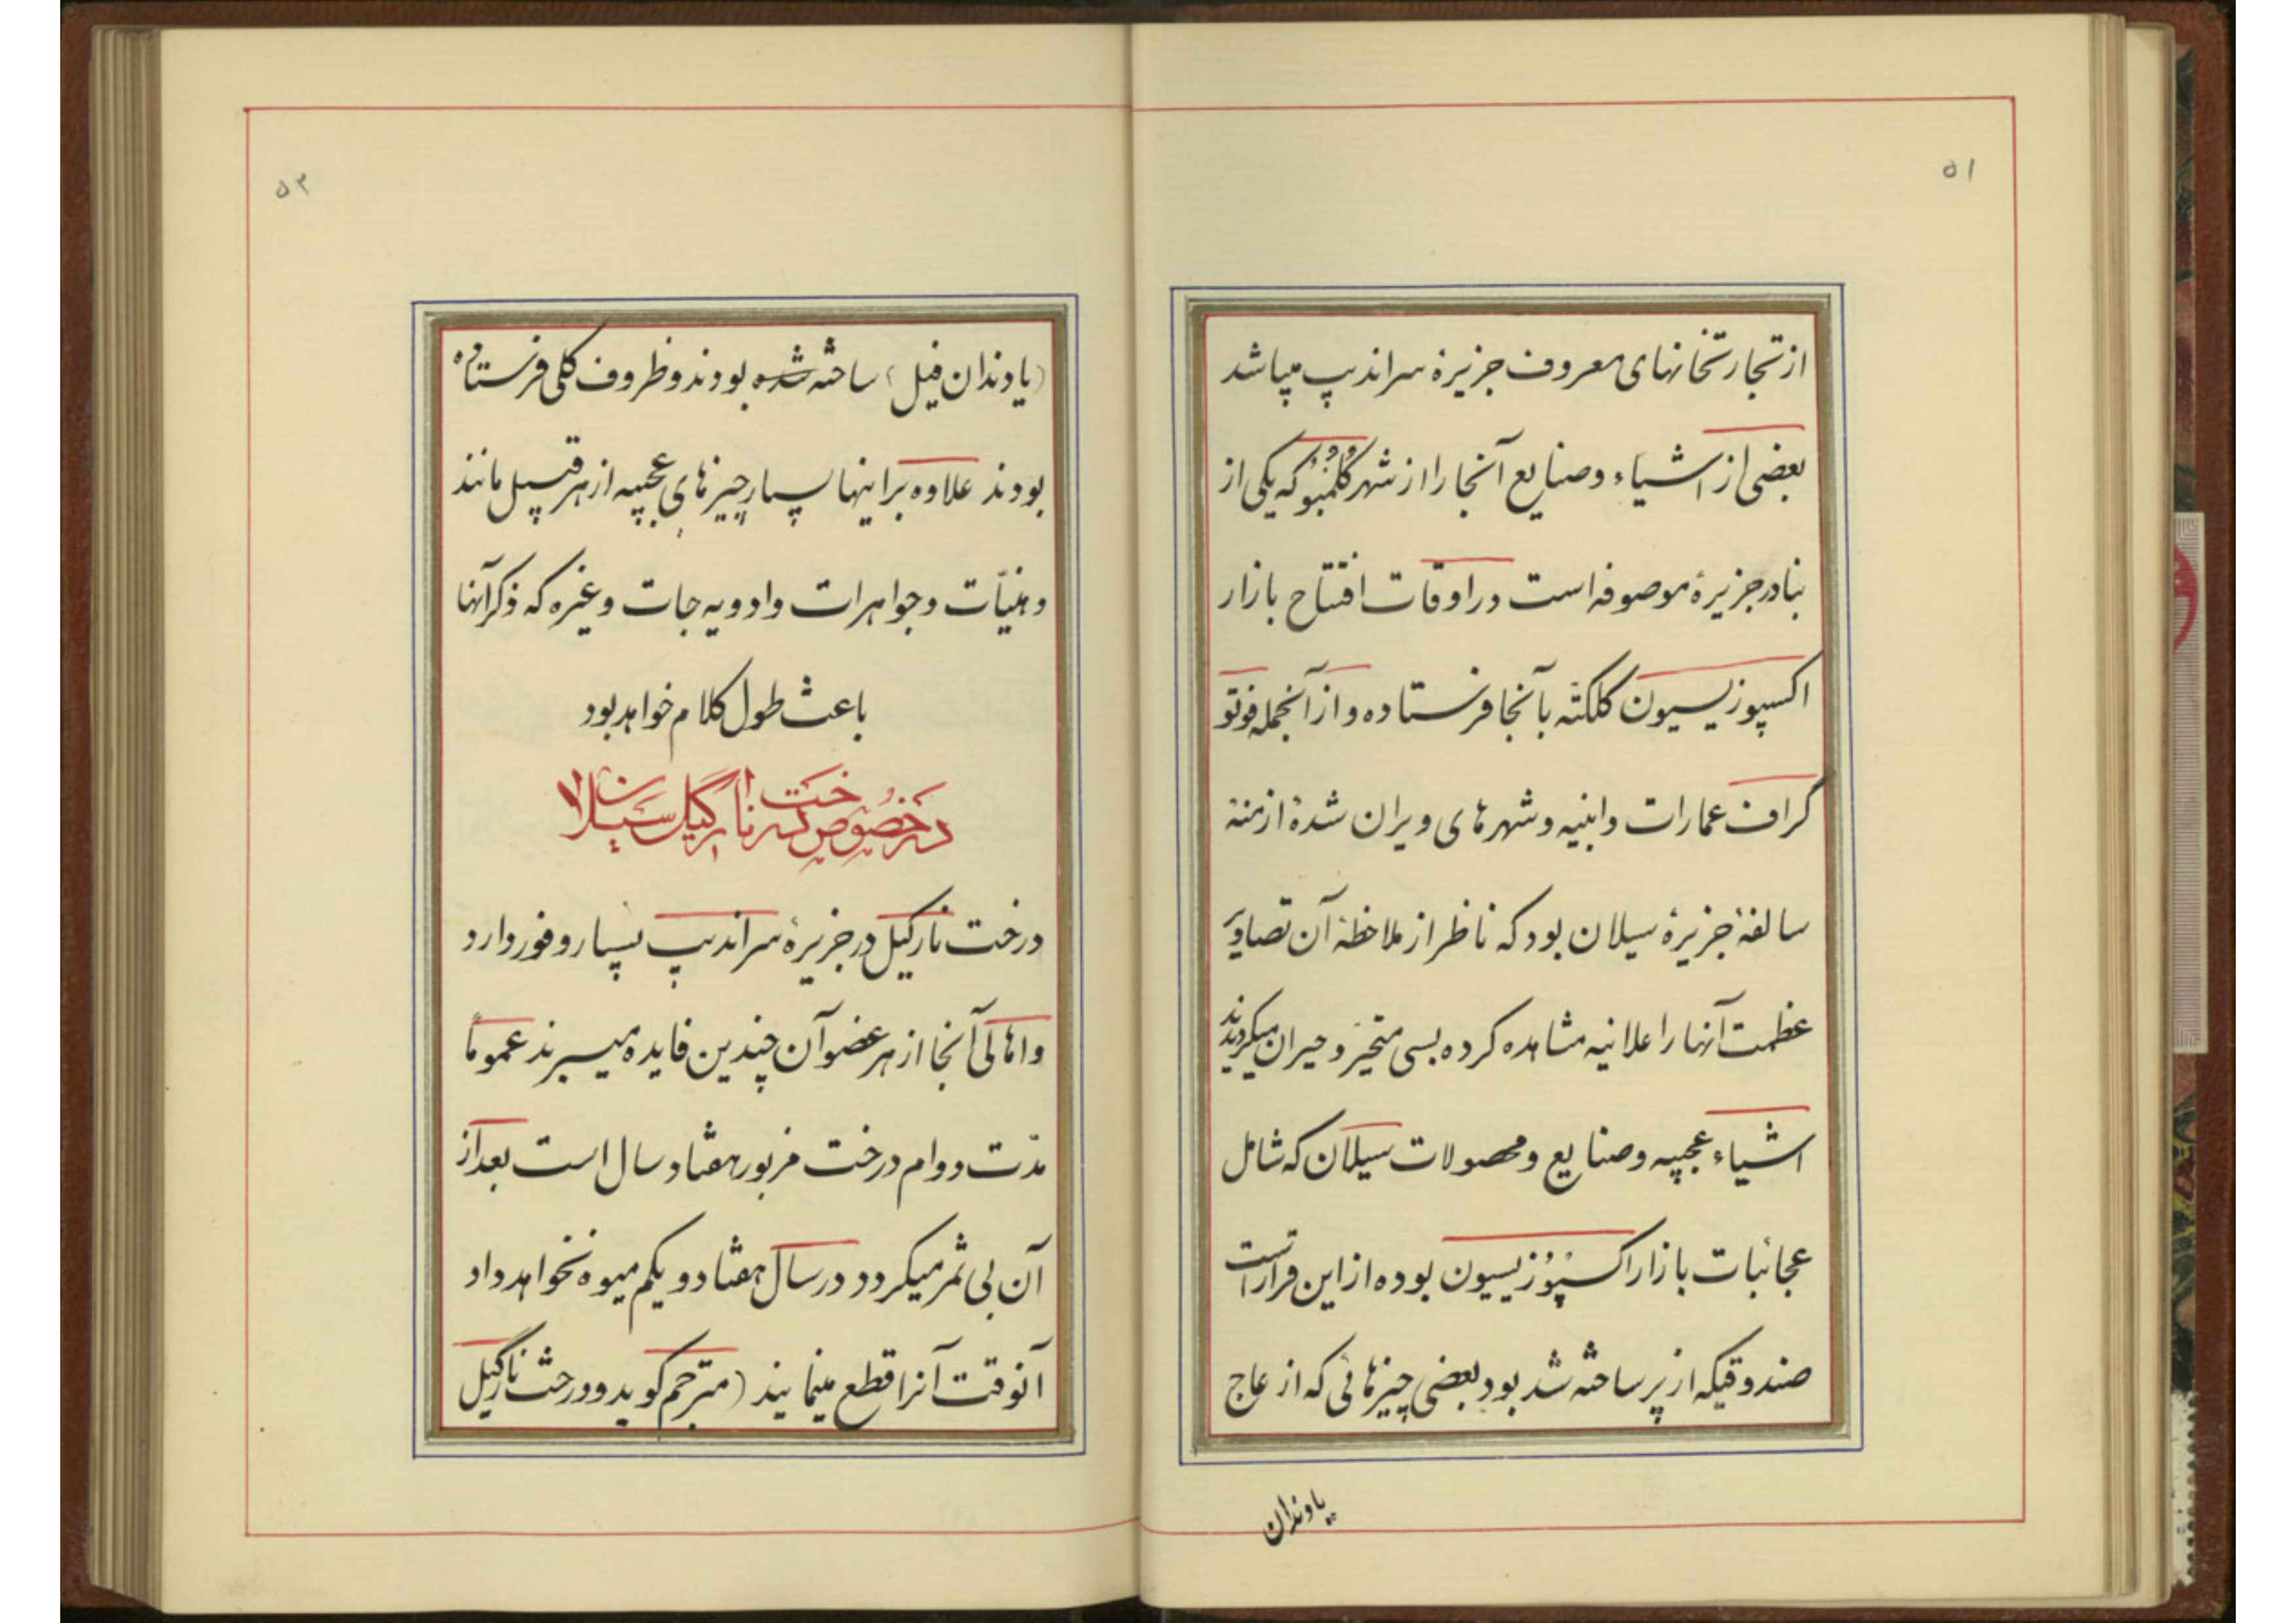 ۵۱
از تجارتخانهای معروف جزیرهٔ سراندیب میباشد
بعضی از اشیاء و صنایع آنجا را از شهر کُلُمْبُو که یکی از
بنادر جزیرهٔ موصوفه است در اوقات افتتاح بازار
اکسپوزیسیون کلکته بآنجا فرستاده و از آنجمله فوتو
گراف عمارات و ابنیه و شهرهای ویران شدهٔ ازمنهٔ
سالفهٔ جزیرهٔ سیلان بود که ناظر از ملاحظهٔ آن تصاویر
عظمت آنها را علانیه مشاهده کرده بسی متحیّر و حیران میگردیدند
اشیاء عجیبه و صنایع و محصولات سیلان که شامل
عجائبات بازار اکسپُوزیسیون بوده از این قرار است
صندوقیکه از پر ساخته شد بود بعضی چیزهائی که از عاج
یا دندان
۵۲
(یا دندان فیل) ساخته شده بودند و ظروف گلی فرستاده
بودند علاوه بر اینها بسیار چیزهای عجیبه از هر قبیل مانند
دهنیّات و جواهرات و ادویه جات و غیره که ذکر آنها
باعث طول کلام خواهد بود
در خصوص درخت نارگیل سیلان
درخت نارگیل در جزیرهٔ سراندیب بسیار وفور دارد
و اهالی آنجا از هر عضو آن چندین فایده میبرند عموماً
مدّت دوام درخت مزبور هفتاد سال است بعد از
آن بی ثمر میگردد در سال هفتاد و یکم میوه نخواهد داد
آنوقت آنرا قطع مینمایند (مترجم گوید دو درخت نارگیل